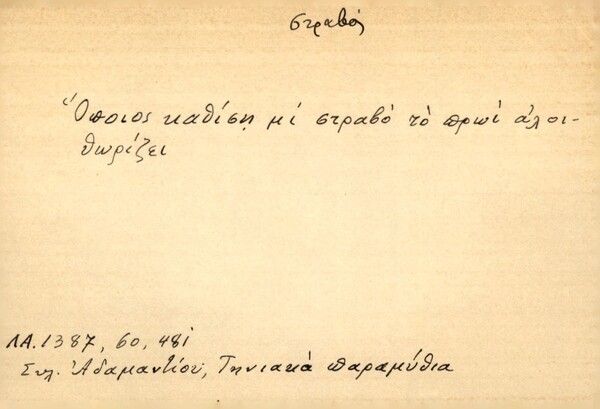 στραβός
Ὅποιος καθίσῃ μὲ στραβὸ τὸ πρωὶ ἀλοι-
θωρίζει
ΛΑ. 1387, 60, 481
Συλ. Ἀδαμαντίου, Τηνιακά παραμύθια